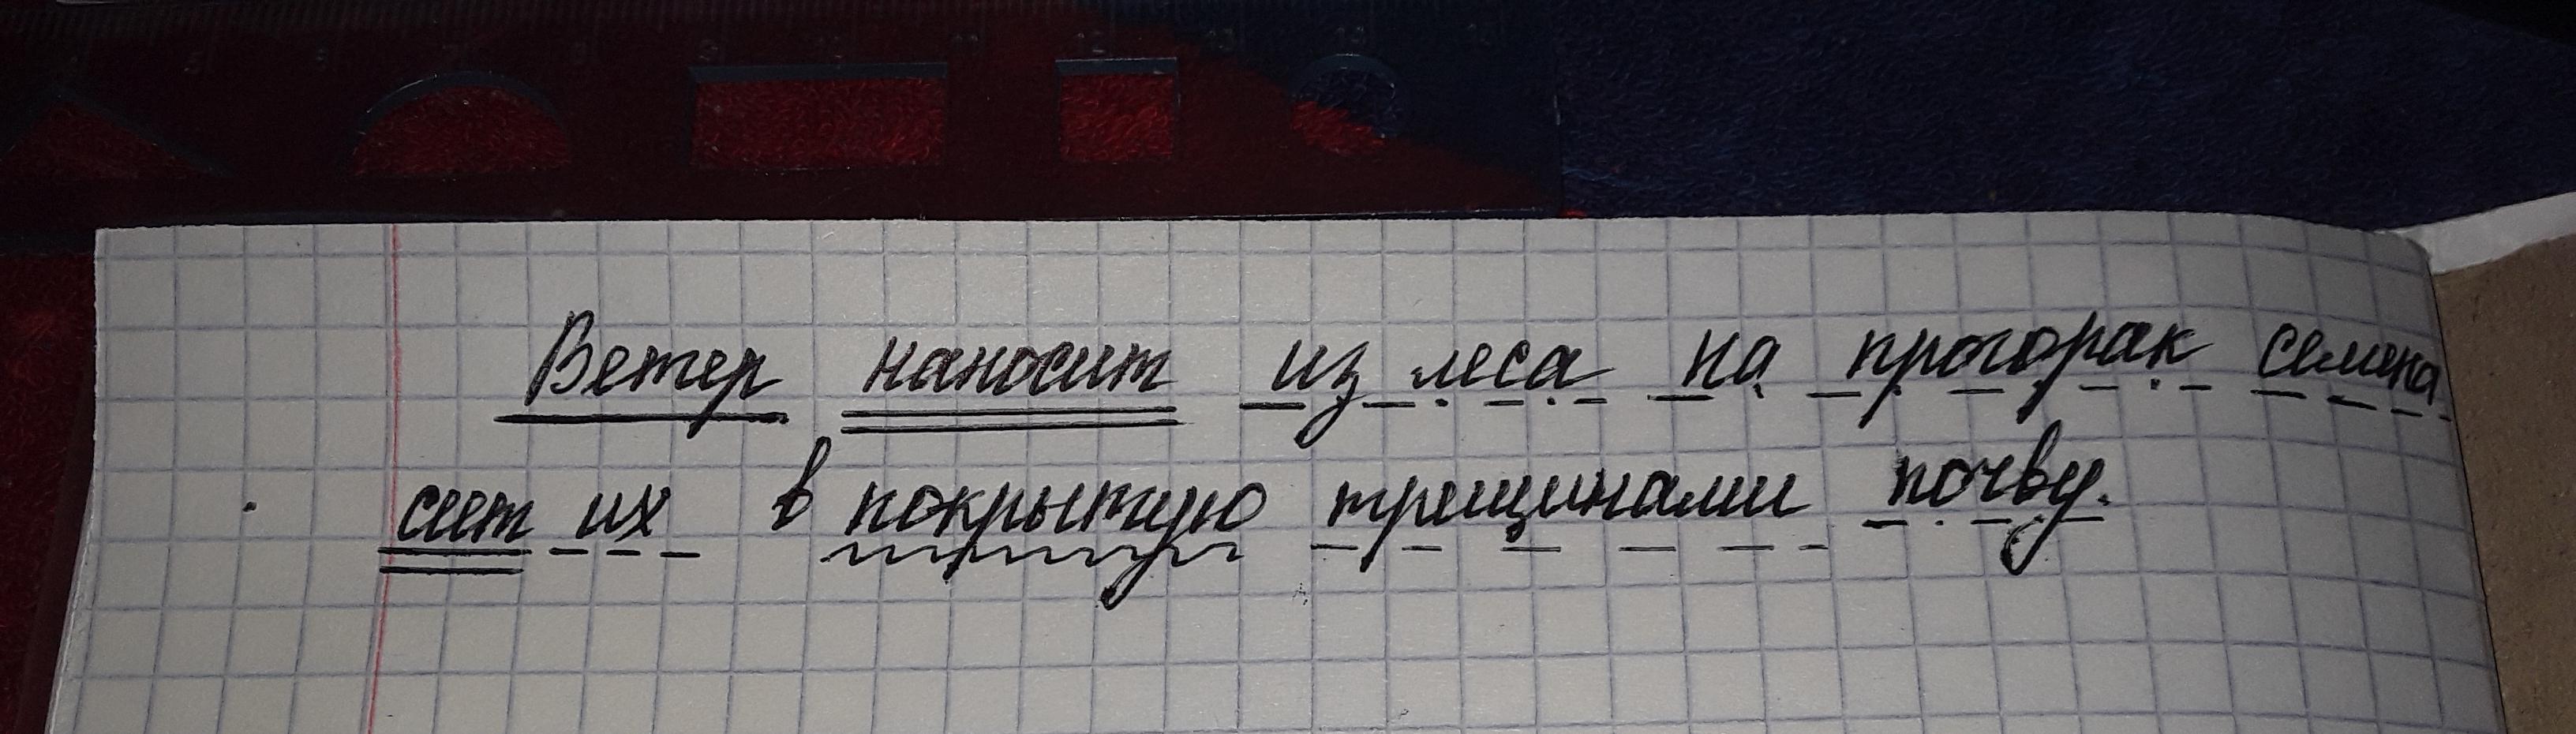 Ветер наносит из леса на прогорак семена
сеет их в покрытую трещинами почву.